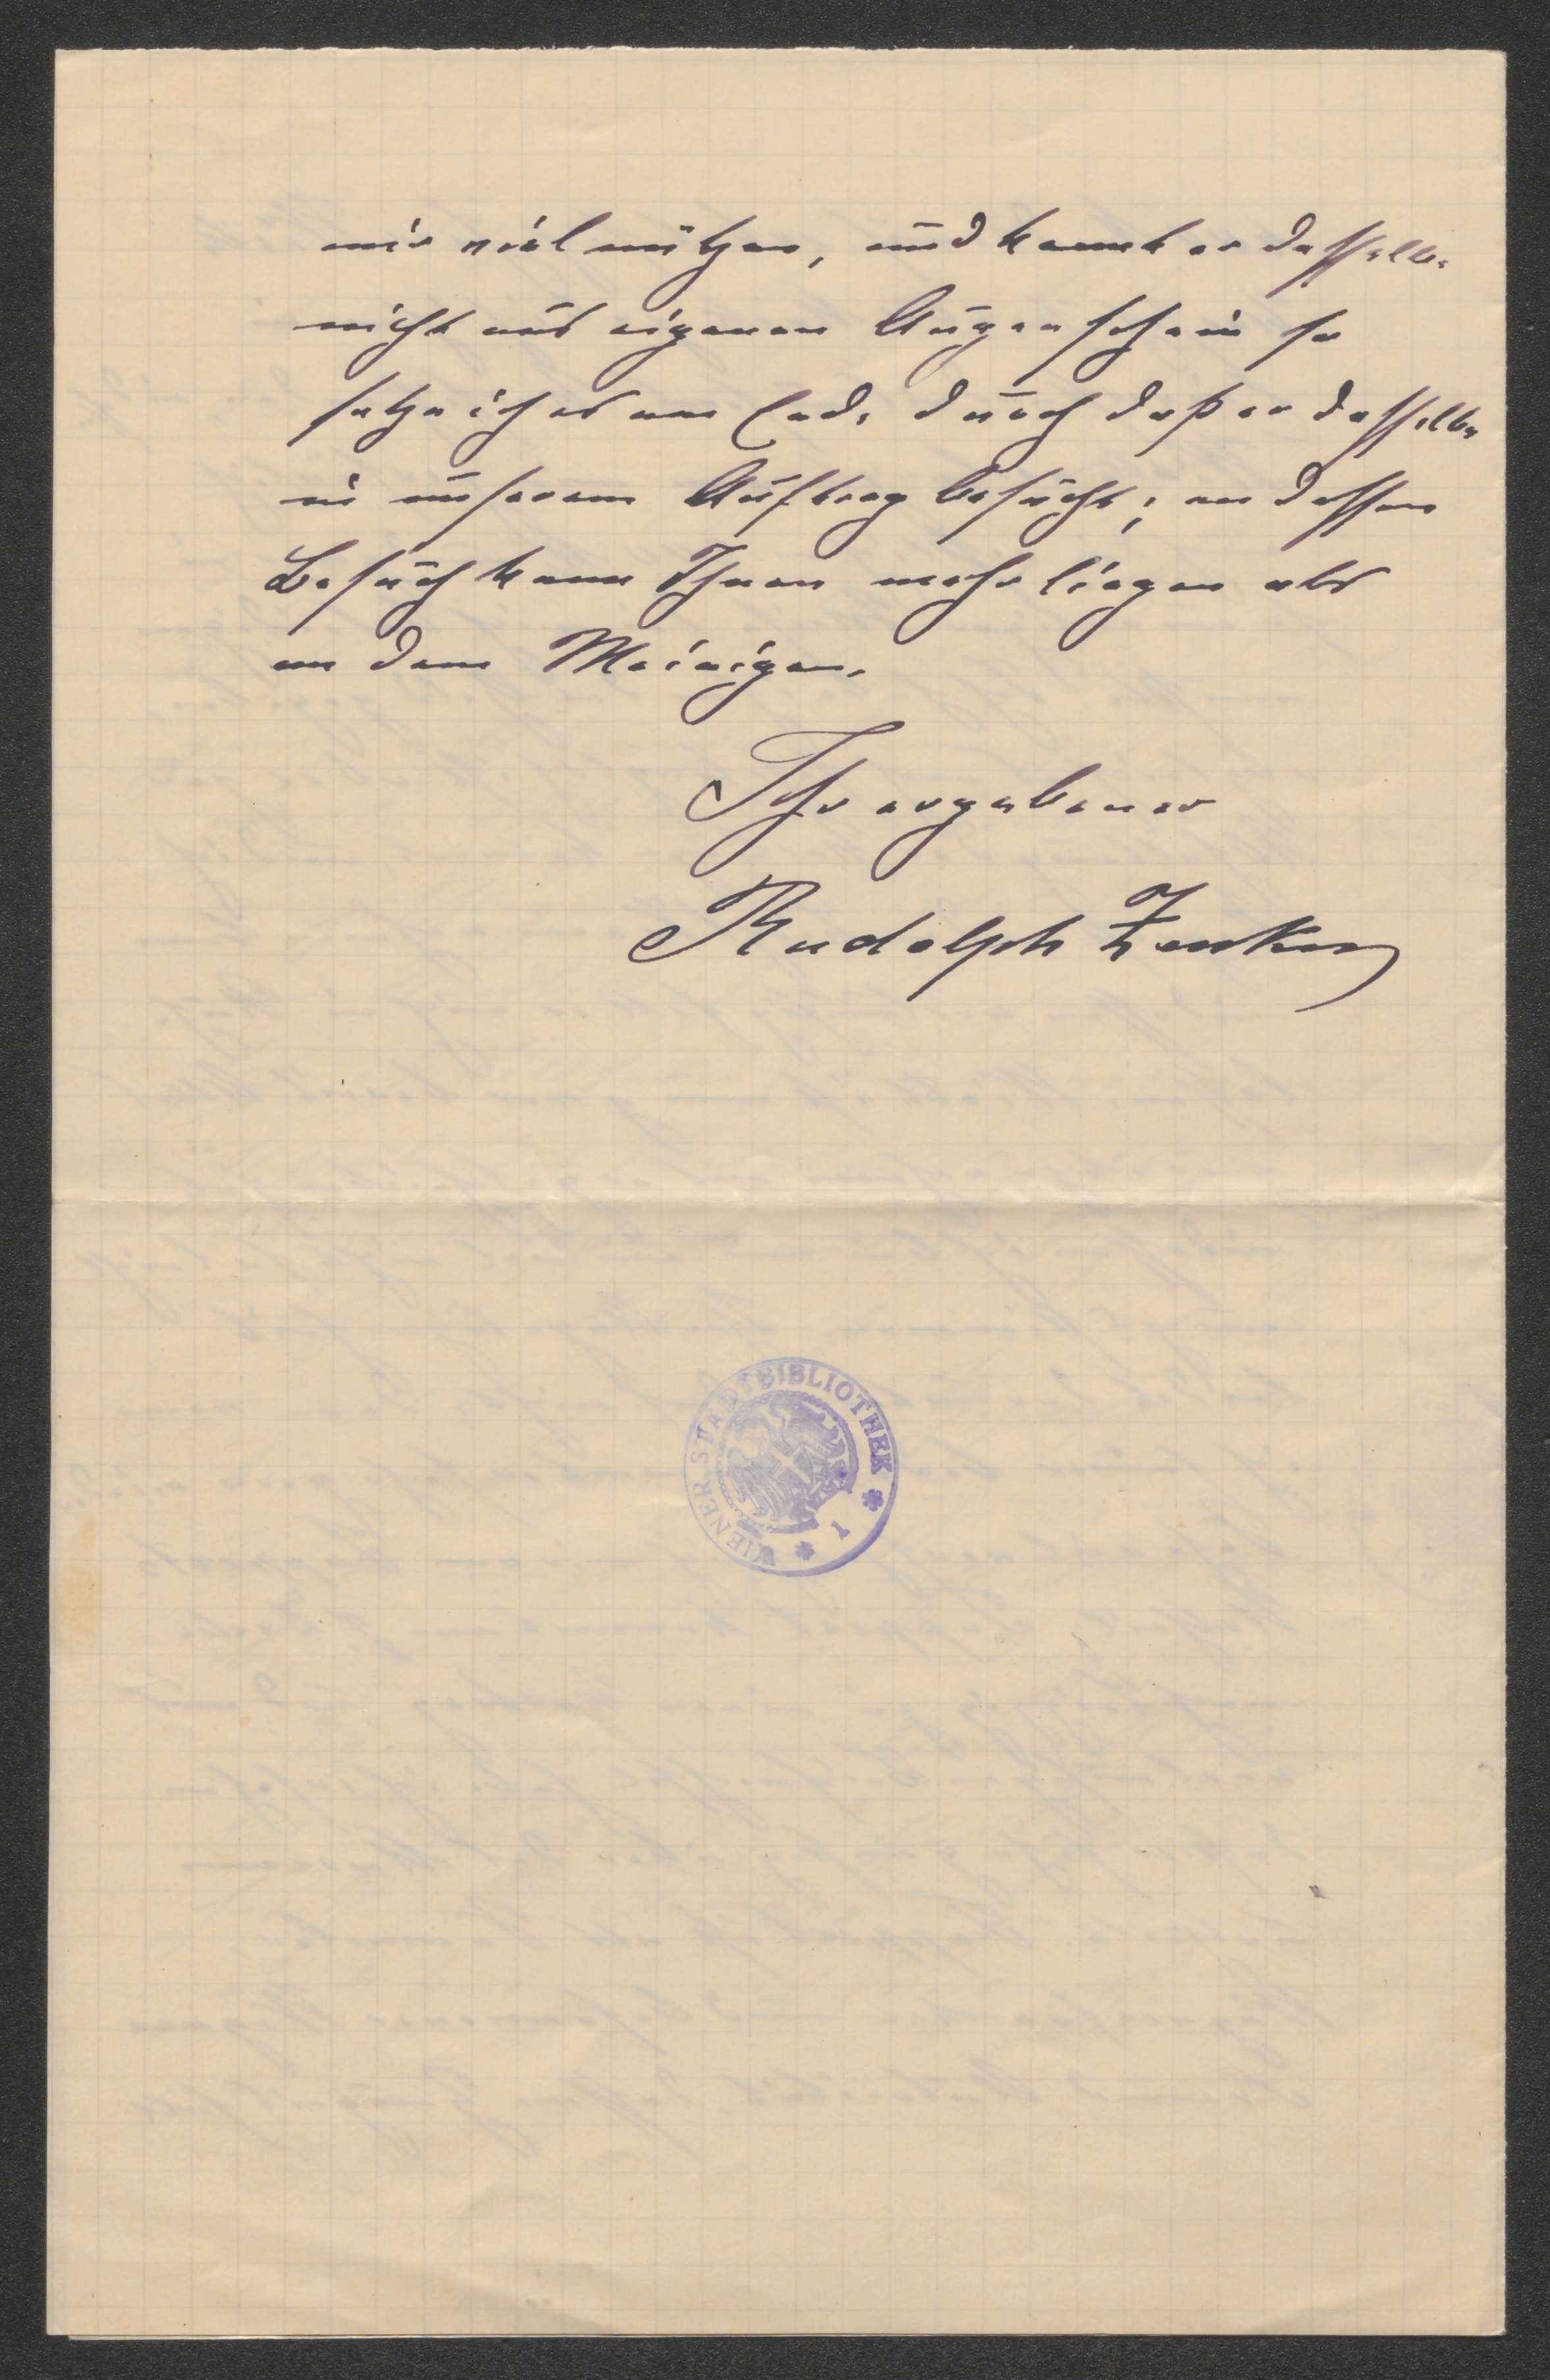 mir viel nützen, und kennt er dasselbe
nicht aus eigenen Augenschein so
setze ich es am Ende durch daß er dasselbe
in unserem Auftrag besucht; an dessen
Besuch kann Ihnen mehr liegen als
an dem Meinigen.
Ihr ergebener
Rudolph Zenker
WIENER STADTBIBLIOTHEK * 1 *